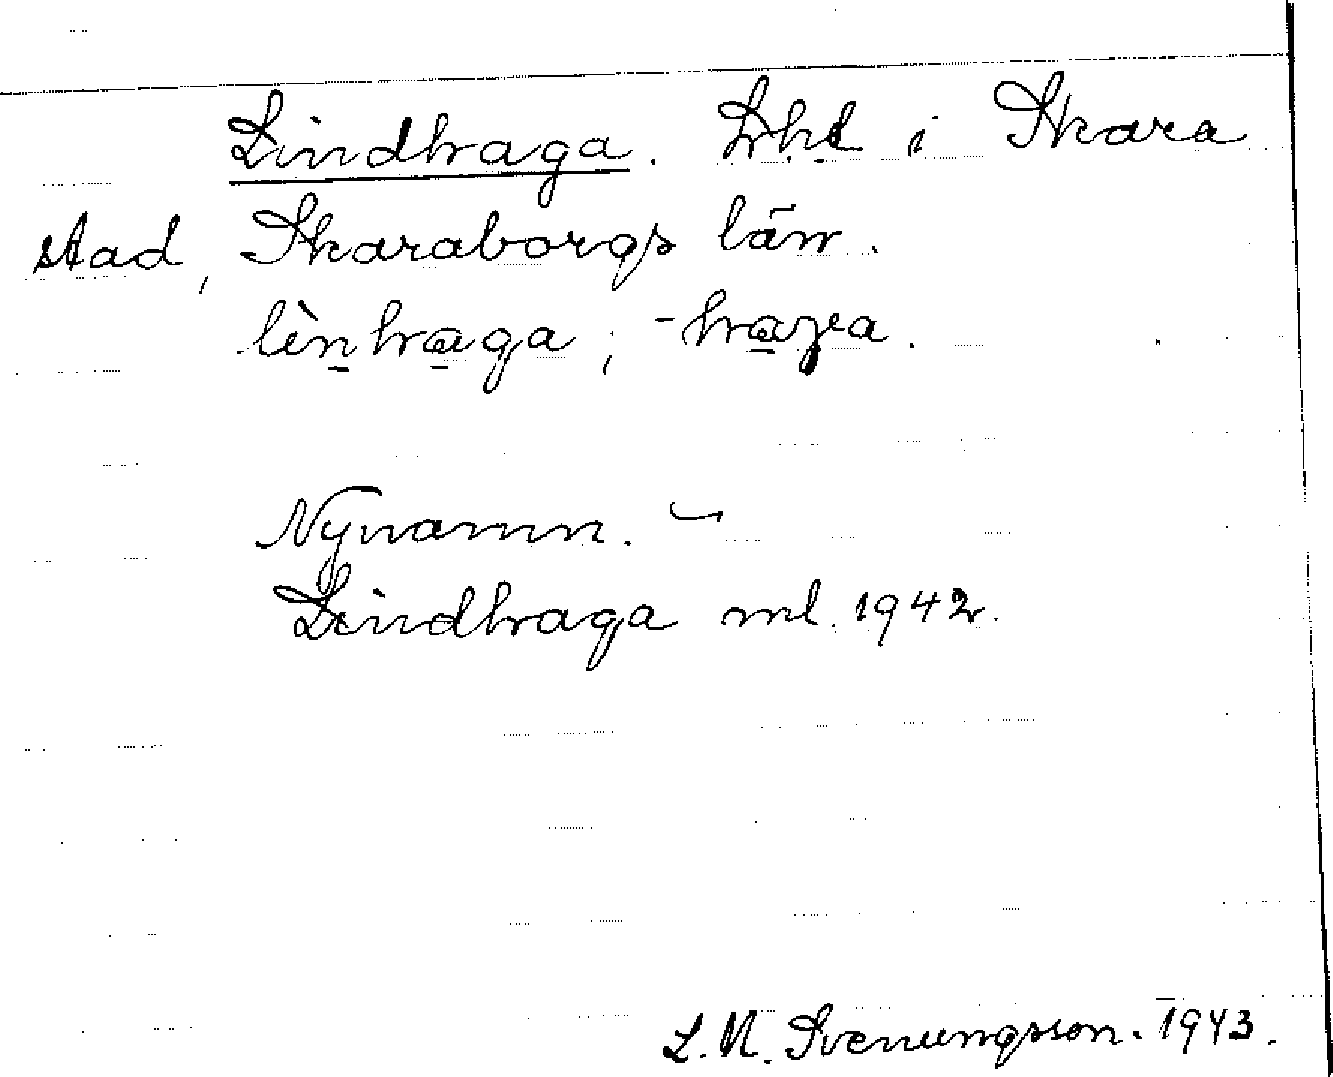 Lindhaga. Lht i Skara
stad, Skaraborgs län.
lìnhaga; -haʒa.
Nynamn. –
Lindhaga ml. 1942.
S. M. Svenungsson. 1943.